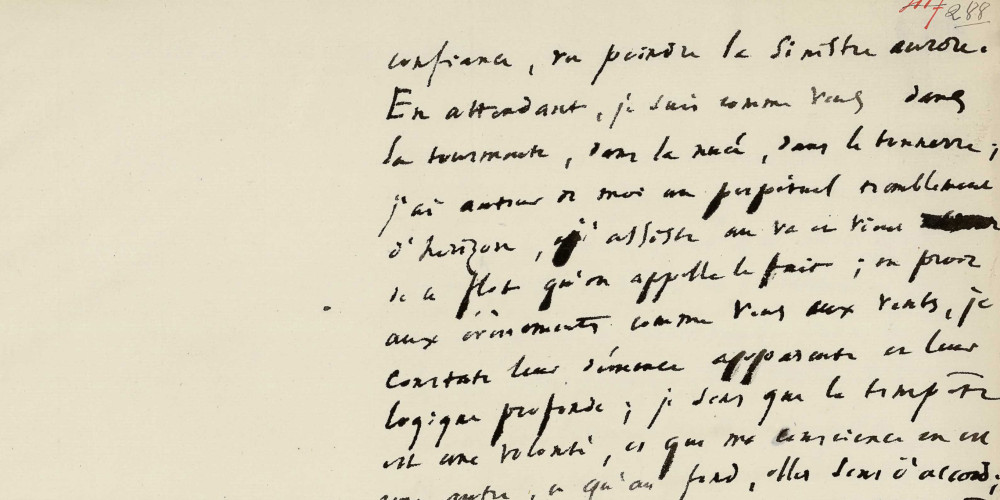 288
confiance, va peindre la sinistre aurore.
En attendant, je suis comme vous dans
la tourmente, dans la nuée, dans le tonnerre ;
j'ai autour de moi un perpétuel tremblement
d'horizon, j'assiste au va et vient
de ce flot qu'on appelle le fait ; en proie
aux évènements comme vous aux vents, je
constate leur démence apparente et leur
logique profonde ; je sens que la tempête
est une volonté, et que ma conscience en est
une autre, et qu'au fond, elles sont d'accord ;